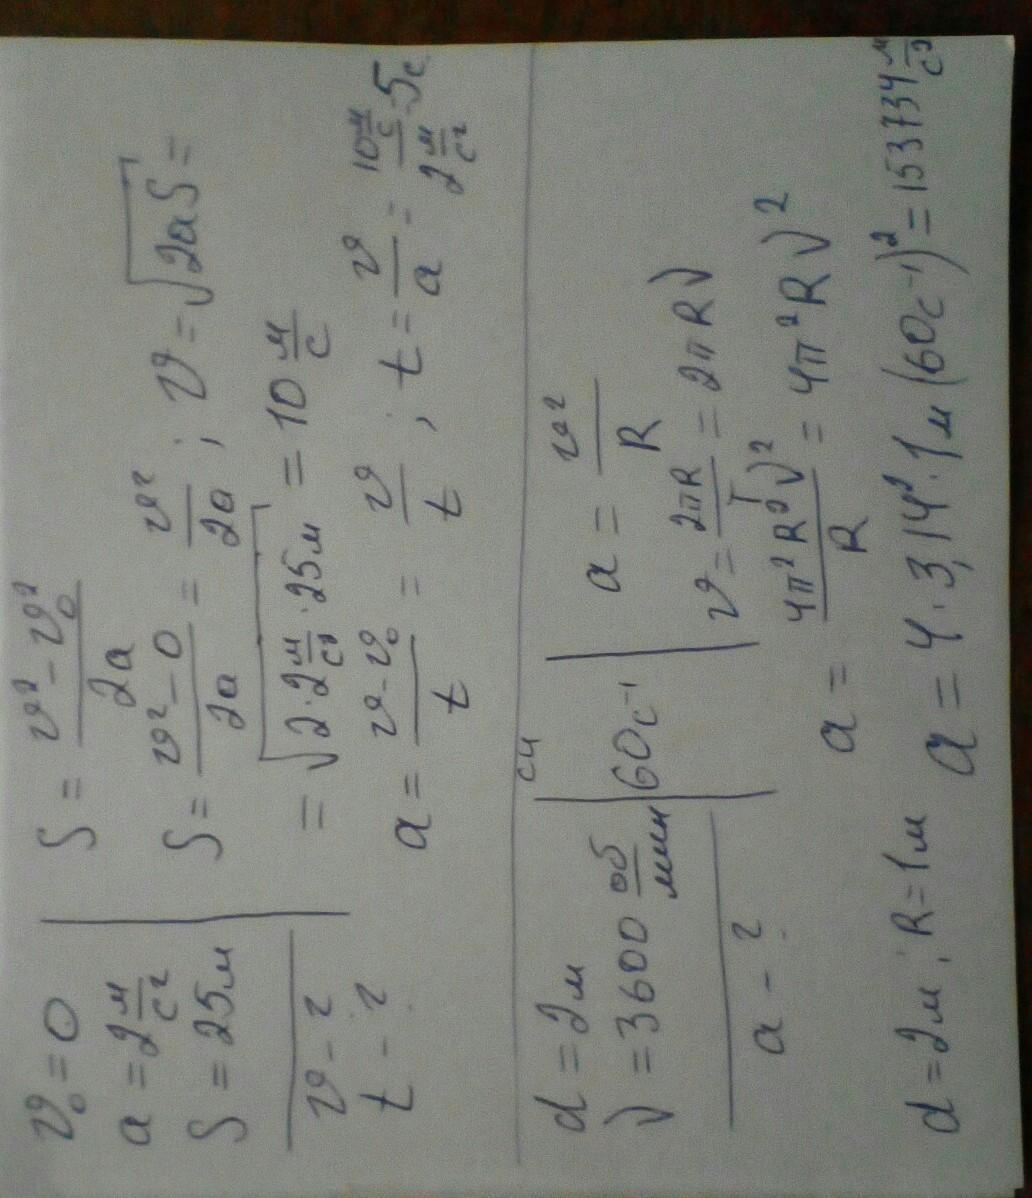 v₀ = 0
a = 2 м/с²
S = 25 м
v - ?
t - ?
S = (v² - v₀²)/2a
S = (v² - 0)/2a = v²/2a ; v = √2aS =
= √2·2 м/с² · 25 м = 10 м/с
a = (v - v₀)/t = v/t ; t = v/a = 10 м/с / 2 м/с² = 5 с
d = 2 м
ν = 3600 об/мин
a - ?
СИ
60 с⁻¹
a = v²/R
v = 2πR/T = 2πRν
a = 4π²R²ν²/R = 4π²Rν²
d = 2 м ; R = 1 м
a = 4 · 3,14² · 1 м (60 с⁻¹)² = 153734 м/с²